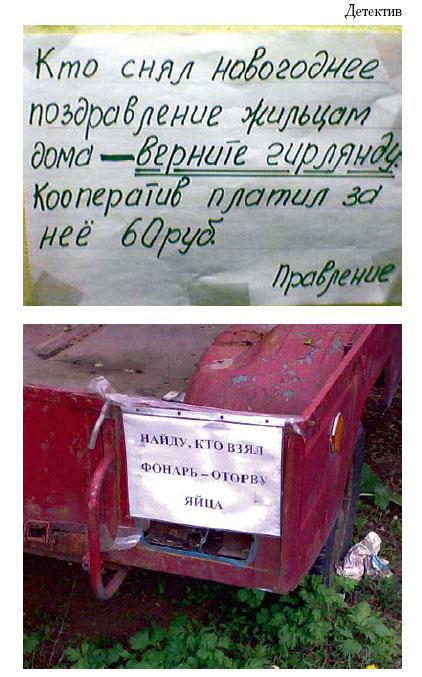 Детектив
Кто снял новогоднее
поздравление жильцам
дома — верните гирлянду.
Кооператив платил за
неё 60руб.
Правление
НАЙДУ, КТО ВЗЯЛ
ФОНАРЬ – ОТОРВУ
ЯЙЦА